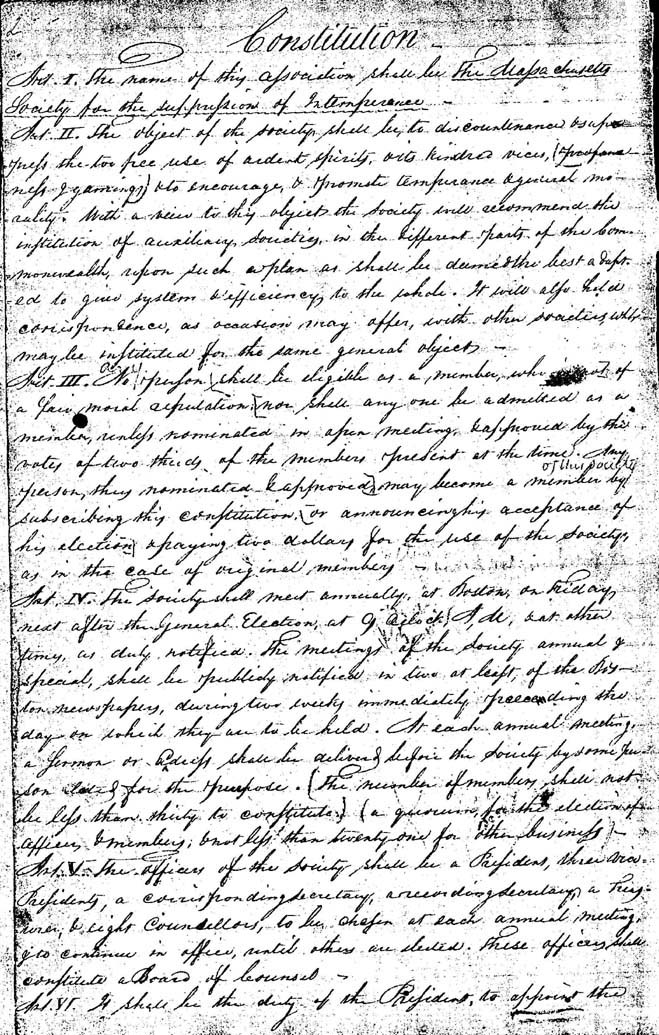 2
Constitution
Art. I. The name of this association shall be the Massachusetts
Society for the suppression of Intemperance —
Art. II. The object of the society shall be, to discountenance & sup-
press the too free use of ardent spirits, & its kindred vices, (profane
ness & gaming;) & to encourage, & promote temperance & general mo-
rality. With a view to this object the society will recommend the
institution of auxiliary societies, in the different parts of the Com-
monwealth, upon such a plan as shall be deemed the best adapt-
ed to give system & efficiency to the whole. It will also hold
correspondence, as occasion may offer, with other societies which
may be instituted for the same general object —
Art. III. No person shall be eligible as a member, who is not of
a fair moral reputation; nor shall any one be admitted as a
member, unless nominated in open meeting, & approved by the
votes of two thirds of the members present at the time. Any
of this society
person, thus nominated & approved, may become a member by
subscribing this constitution, or announcing his acceptance of
his election, & paying two dollars for the use of the society,
as in the case of original members —
Art. IV. The society shall meet annually, at Boston, on Friday
next after the General Election, at 9 oclock A, M, & at other
times, as duly notified. The meetings of the society annual &
special, shall be publicly notified in two at least, of the Bos-
ton newspapers, during two weeks immediately preceeding the
day on which they are to be held. At each annual meeting,
a sermon or adress shall be delivered before the society by some per
son for the purpose. (The number of members shall not
be less than thirty to constitute) (a quorum for the election of
officers & members; & not less than twenty one for other business) —
Art. V. The officers of the society shall be a President, three vice
Presidents, a corresponding secretary, a recording secretary, a treas-
urer, & eight Counsellors, to be chosen at each annual meeting,
& to continue in office, until others are elected. These officers shall
constitute a Board of Counsel —
Art. VI. It shall be the duty of the President, to appoint the